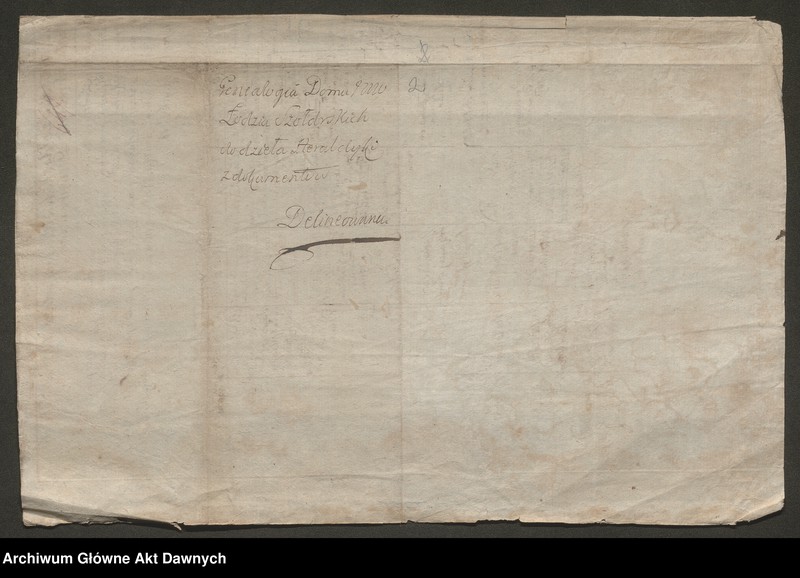 Genealogia Domu JWW
Łodzia Szołdrskich
do dzieła Heraldyki
z dokumentów
Delineowana.
2
Archiwum Główne Akt Dawnych